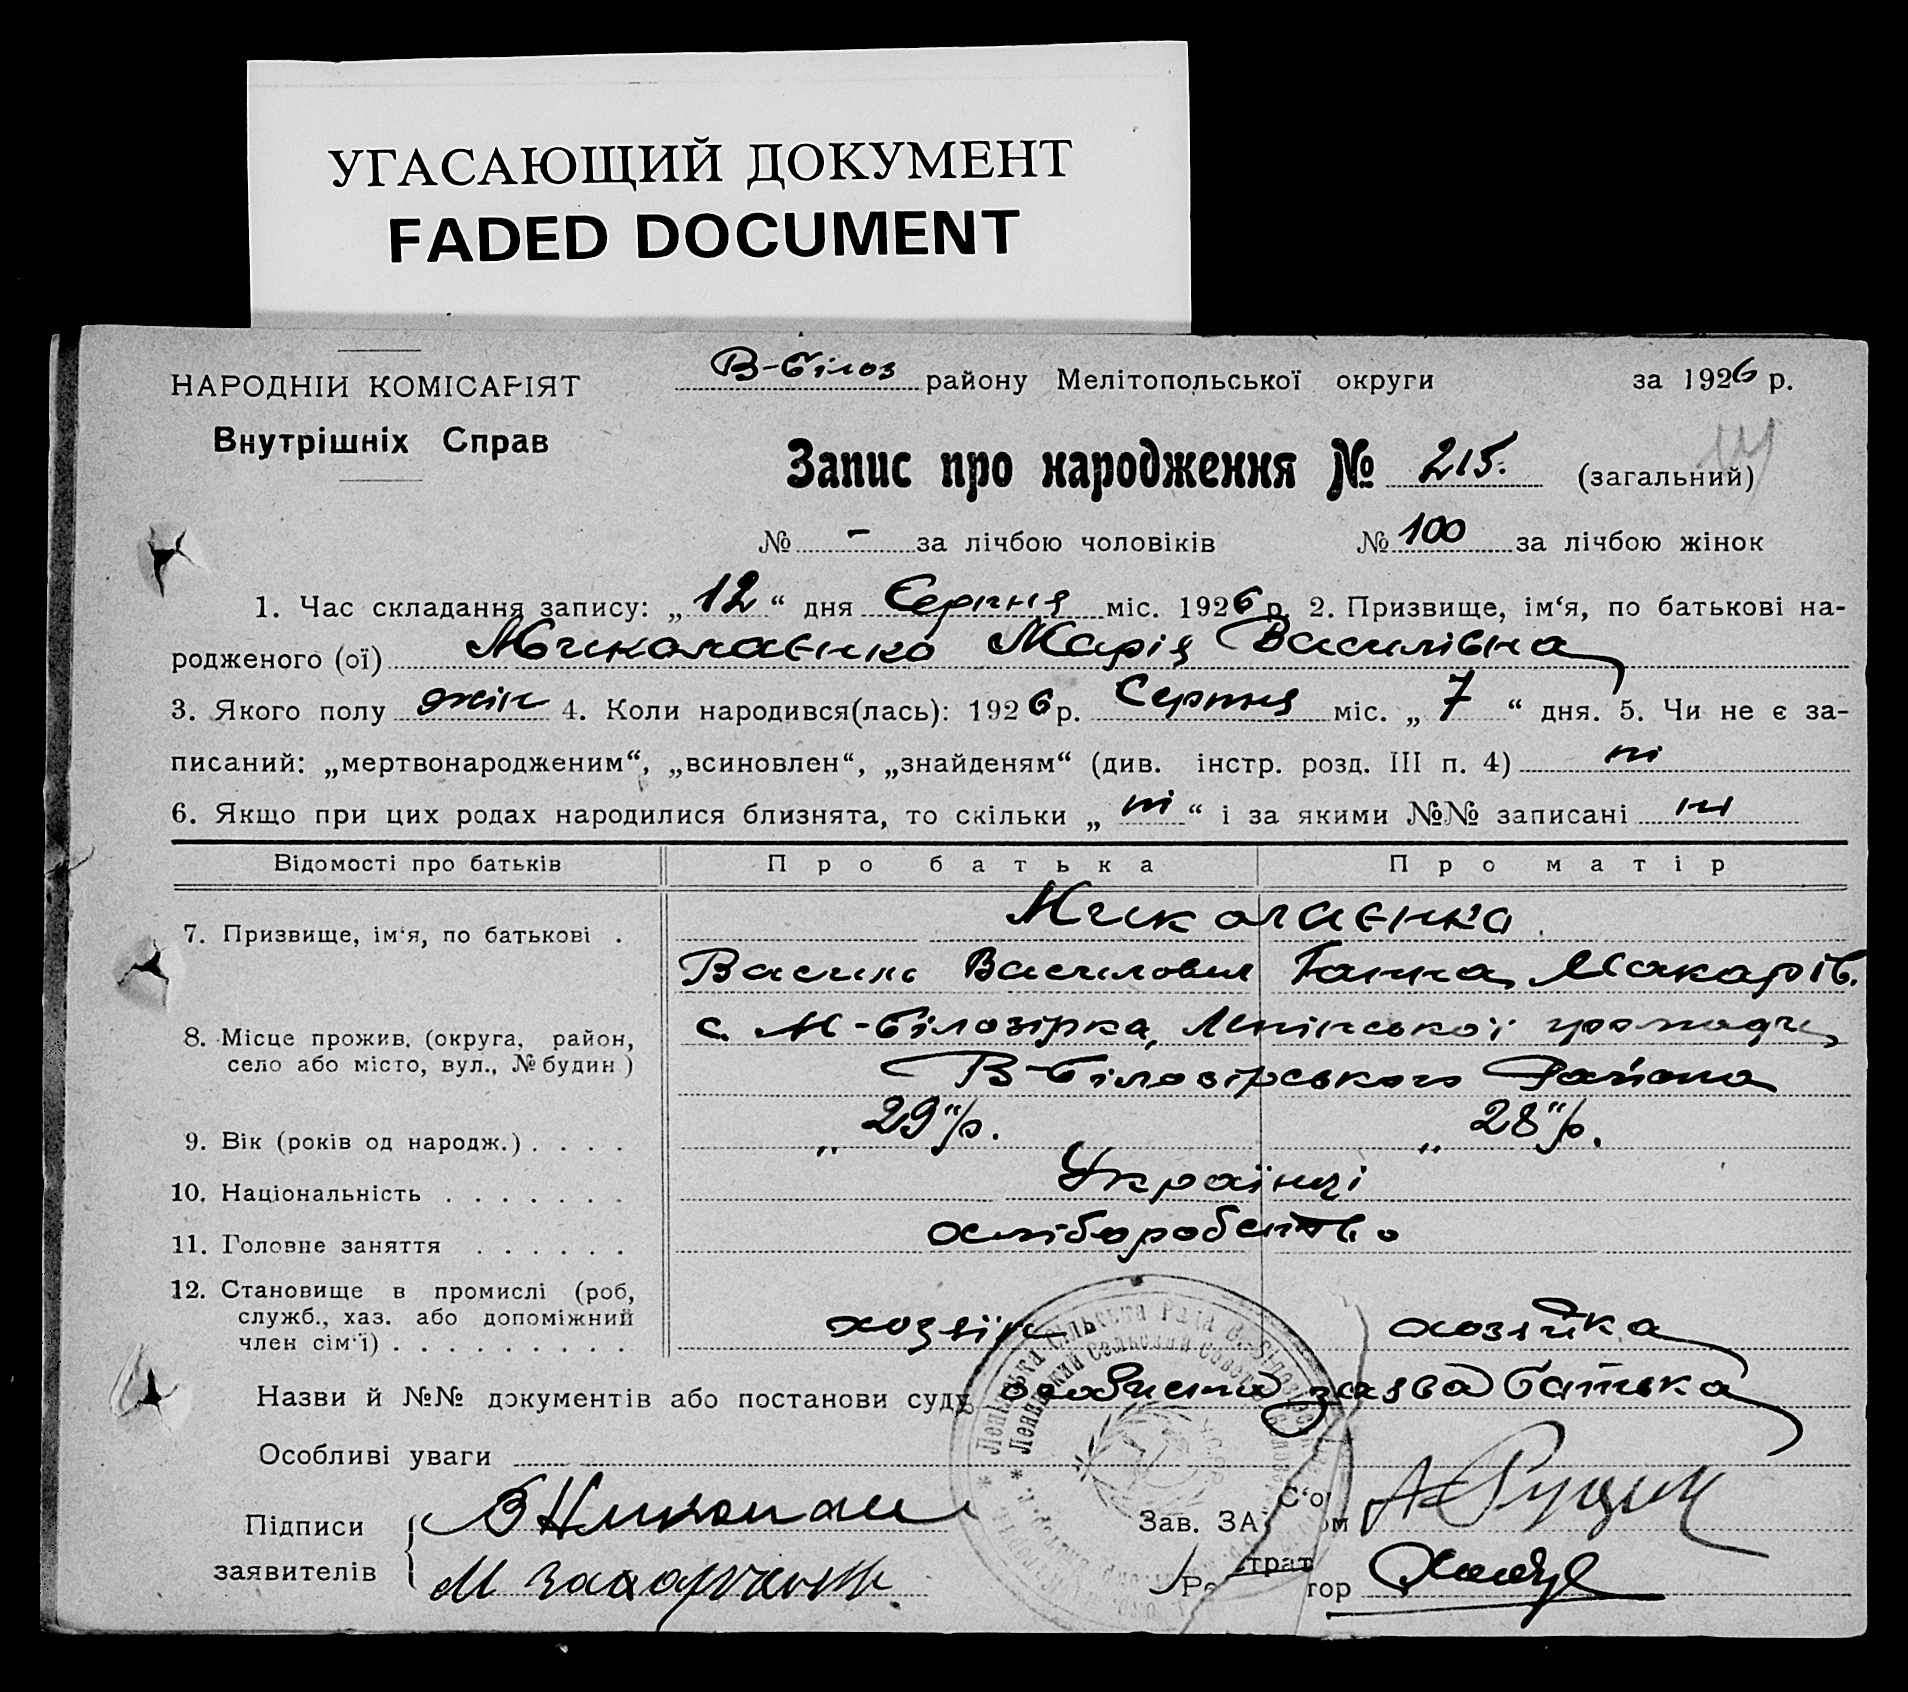 УГАСАЮЩИЙ ДОКУМЕНТ
FADED DOCUMENT
НАРОДНІЙ КОМІСАРІЯТ
Внутрішніх Справ
В-Білоз району Мелітопольської округи за 1926 р.
Запис про народження № 215. (загальний)
№ - за лічбою чоловіків № 100 за лічбою жінок
1. Час складання запису: „12“ дня Серпня міс. 1926 р. 2. Призвище, ім‘я, по батькові на-
родженого (ої) Миколаєнко Марія Василівна
3. Якого полу жін 4. Коли народився(лась): 1926 р. Серпня міс. „7“ дня. 5. Чи не є за-
писаний: „мертвонародженим“, „всиновлен“, „знайденям“ (див. інстр. розд. III п. 4) ні
6. Якщо при цих родах народилися близнята, то скільки „ні“ і за якими №№ записані ні
Відомості про батьків Про батька Про матір
7. Призвище, ім‘я, по батькові . Миколаєнко
Василь Василович Ганна Макарів.
8. Місце прожив. (округа, район, село або місто, вул., № будин) с. М-Білозірка, Ленінської громади
В-Білозірського Района
9. Вік (років од народж.) . . . . „29“ р. „28“ р.
10. Національність . . . . . . . Українці
11. Головне заняття . . . . . . хліборобство
12. Становище в промислі (роб,
служб., хаз. або допоміжний
член сім‘ї) . . . . . . . . . хозяїн хозяйка
Назви й №№ документів або постанови суду особиста заява батька
Особливі уваги
Підписи
заявителів
Зав. ЗА